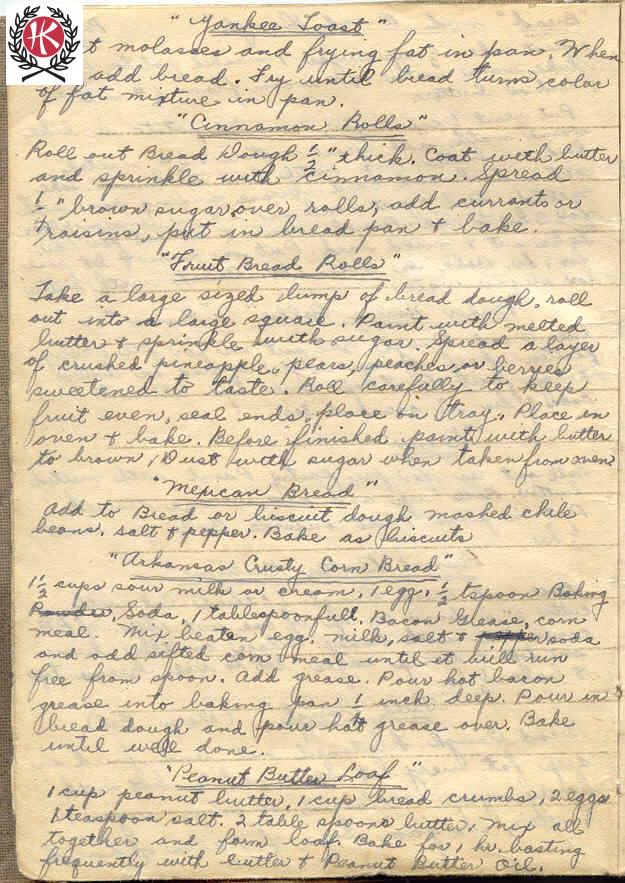 K
"Yankee Toast"
t molasses and frying fat in pan. When
add bread. Fry until bread turns color
of fat mixture in pan.
"Cinnamon Rolls"
Roll out Bread Dough 1/2" thick. Coat with butter
and sprinkle with cinnamon. Spread
1/4" brown sugar over rolls, add currants or
raisins, put in bread pan + bake.
"Fruit Bread Rolls"
Take a large sized lump of bread dough, roll
out into a large square. Paint with melted
butter + sprinkle with sugar. Spread a layer
of crushed pineapple, pears, peaches, or berries
sweetened to taste. Roll carefully to keep
fruit even, seal ends, place on tray. Place in
oven + bake. Before finished paint with butter
to brown. Dust with sugar when taken from oven.
"Mexican Bread"
Add to Bread or biscuit dough mashed chile
beans, salt + pepper. Bake as biscuits
"Arkansas Crusty Corn Bread"
1 1/2 cups sour milk or cream, 1 egg, 1/2 tspoon Baking
Powder, Soda, 1 tablespoonfull Bacon Grease, corn
meal. Mix beaten egg, milk, salt + soda
and add sifted corn meal until it will run
free from spoon. Add grease. Pour hot bacon
grease into baking pan 1/4 inch deep. Pour in
bread dough and pour hot grease over. Bake
until well done.
"Peanut Butter Loaf"
1 cup peanut butter, 1 cup bread crumbs, 2 eggs
1 teaspoon salt. 2 table spoons butter, mix all
together and form loaf. Bake for 1 hr. basting
frequently with butter + Peanut Butter Oil.